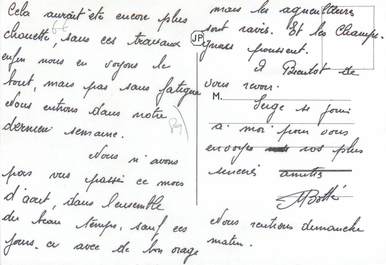 Cela aurait été encore plus
chouette, sans ces travaux
enfin nous en voyons le
bout, mais pas sans fatigue
Nous entrons dans notre
dernier semaine.
Nous n'avons
pas vus passé ce mois
d'aout, dans l'ensemble
du beau temps, sauf ces
jours. ci avec de bon orage
mais les agriculteurs
sont ravis. Et les Champi-
gnons poussent.
JP
A Bientot de
vous revoir.
M. Serge se joint
à moi pour vous
envoyer nos plus
sincères amitiés
Nous rentrons dimanche
matin.